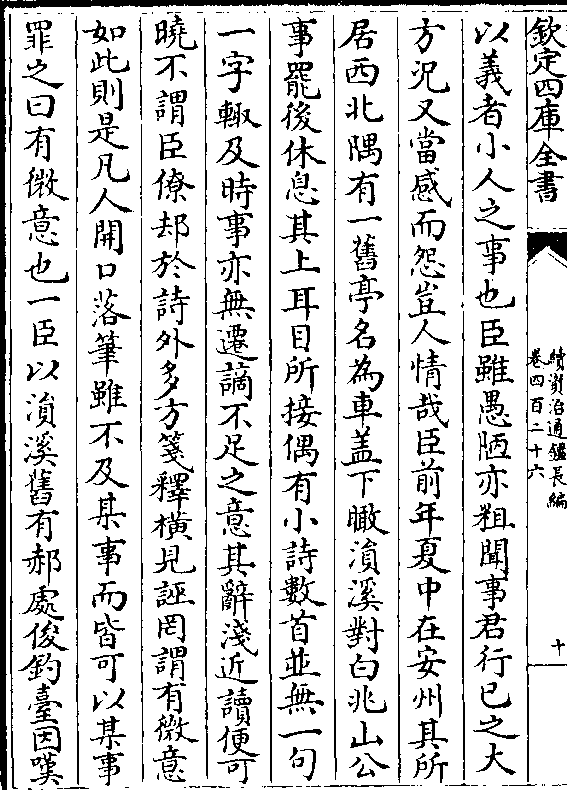 欽定四庫全書
續資治通鑑長編
卷四百二十六
十
以義者小人之事也臣雖愚陋亦粗聞事君行已之大
方況又當感而怨豈人情哉臣前年夏中在安州其所
居西北隅有一舊亭名為車盖下瞰溳溪對白兆山公
事罷後休息其上耳目所接偶有小詩數首並無一句
一字輙及時事亦無遷謫不足之意其辭淺近讀便可
曉不謂臣僚却於詩外多方箋釋橫見誣罔謂有微意
如此則是凡人開口落筆雖不及某事而皆可以某事
罪之曰有微意也一臣以溳溪舊有郝處俊釣臺因嘆